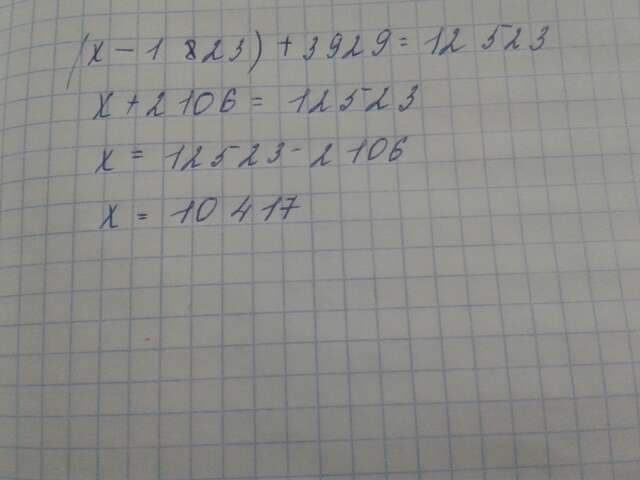 (x - 1 823) + 3929 = 12 523
x + 2 106 = 12523
x = 12523 - 2 106
x = 10 417